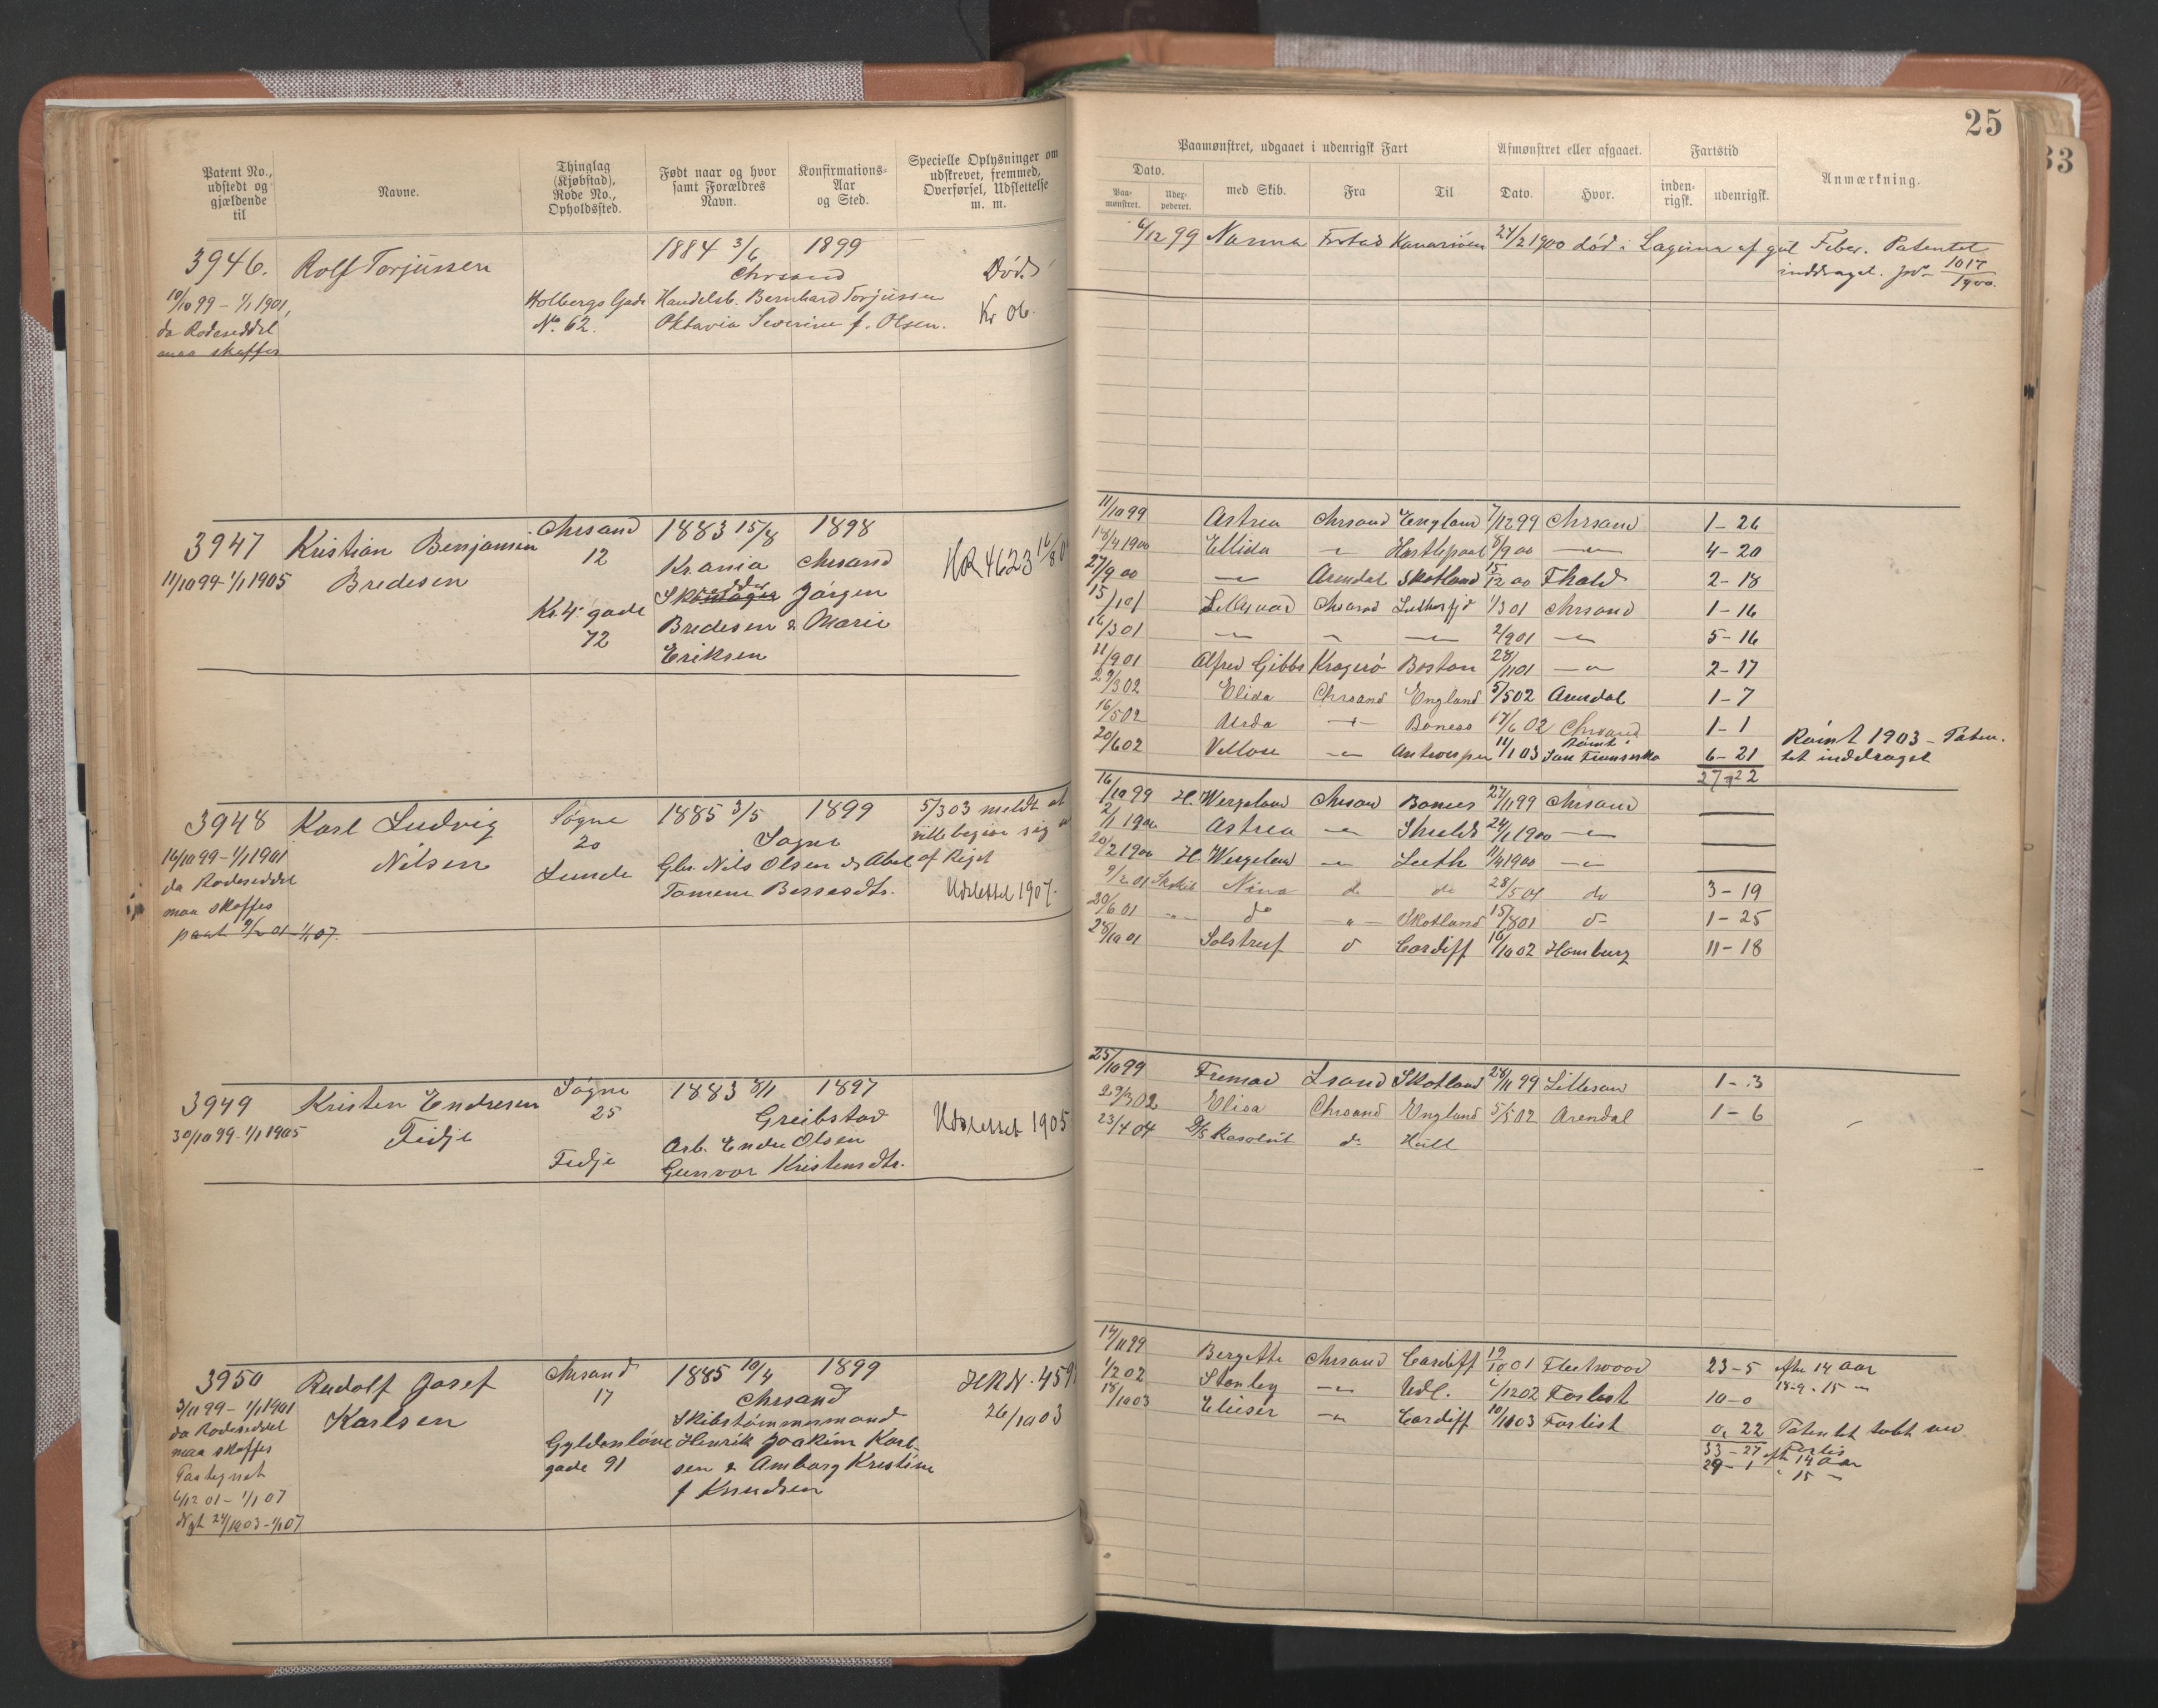 25
33
Patent No., udstedt og gjældende til
Navne.
Thinglag (Kjøbstad), Rode No., Opholdssted.
Født naar og hvor samt Forældres Navn.
Konfirmations-Aar og Sted.
Specielle Oplysninger om udskrevet, fremmed, Overførsel, Udslettelse m. m.
Paamønstret, udgaaet i udenrigsk Fart
Dato.
Paa-mønstret.
Uder-pederet.
med Skib.
Fra
Til
Afmønstret eller afgaaet.
Dato.
Hvor.
Fartstid
inden-rigsk.
udenrigsk.
Anmærkning.
3946.
10/10 99 – 1/1 1901,
da Rodeseddel
maa skaffes
Rolf Torjussen
Holbergs Gade
No. 62.
1884 3/6 1899
Chrsand
Handelsb. Bernhard Torjussen
Oktavia Severine f. Olsen.
Død
Kr 06.
6/12 99 Nanna Frstad Kanariøen 24/2 1900 død i Laguna af gul Feber. Patentet
inddraget. 1017/1900.
3947
11/10 99 – 1/1 1905
Kristian Benjamin
Bredesen
Chrsand
12
Kr. 4. gade
72
1883 15/8 1898
Krania Chrsand
Jørgen
Bredesen & Marie
Eriksen
HR 4623 16/8
11/10 99 Astrea Chrsand England 7/12 99 Chrsand 1 – 26
18/4 1900 Ellida – " – Hartlepool 8/9 00 – " – 4 – 20
27/9 00 – " – Arendal Skotland 15/12 00 Fhald 2 – 18
15/1 01 Chrsand 1/3 01 Chrsand 1 – 16
16/3 01 – " – – " – – " – 2/9 01 – " – 5 – 16
11/9 01 Alfred Gibbs Kragerø Boston 28/11 01 – " – 2 – 17
29/3 02 Elida Chrsand England 5/5 02 Arendal 1 – 7
16/5 02 Urda – " – Boness 17/6 02 Chrsand 1 – 1
20/6 02 – " – Antwerpen 11/1 03 Rømt San Fransisko 6 – 21
27 – 22
Rømt 1903 – Paten-
tet inddraget
3948
16/10 99 – 1/1 1901
da Rodeseddel
maa skaffes
paat 9/2 01 – 1/1 07.
Karl Ludvig
Nilsen
Søgne
20
Lunde
1885 3/5 1899
Søgne
Gbr. Nils Olsen & Abel
Tomine Bersesdtr.
5/3 03 meldt at
ville begive sig ud
af Riget
Udslettet 1907.
16/10 99 H. Wergeland Chrsan Boness 27/11 99 Chrsand
2/1 1900 Astrea – " – Shields 24/1 1900 – " –
20/2 1900 H. Wergeland – " – Leith 9/4 1900 – " –
9/2 01 Skskib Nina do do 28/5 01 do 3 – 19
20/6 01 – " – do – " – Skotland 15/8 01 do 1 – 25
28/10 01 Solstreif do Cardiff 16/10 02 Hamburg 11 – 18
3949
30/10 99 – 1/1 1905
Kristen Endresen
Fidje
Søgne
25
Fidje
1883 8/1 1897
Greibstad
Arb. Endre Olsen
Gunvor Kristensdtr.
Udslettet 1905
25/10 99 Fremad Lsand Skotland 28/11 99 Lillesand 1 – 3
29/3 02 Elida Chrsand England 5/5 02 Arendal 1 – 6
23/4 04 D/S Resolut do Hull
3950
3/11 99 – 1/1 1901
da Rodeseddel
maa skaffes
Paategnet
6/12 01 – 1/1 07
Nyt 24/10 03 – 1/1 07
Rudolf Josef
Karlsen
Chrsand
17
Gyldenløve
gade 91
1885 10/4 1899
Chrsand
Skibstømmermand
Henrik Joakim Karl-
sen & Amborg Kristine
f Knudsen
HRN. 459
26/10 03
14/11 99 Bergette Chrsand Cardiff 19/10 01 Fleetwood 23 – 5 efter 14 Aar
1/2 02 Stanley – " – Udl. 2/12 02 Forlist 10 – 0 18 – 9 – 15 – "
18/10 03 Elieser – " – Cardiff 10/11 03 Forlist 0, 22 Patentet tabt ved
Forlis
33 – 27 eft 14 Aar
29 – 1 " 15 – "